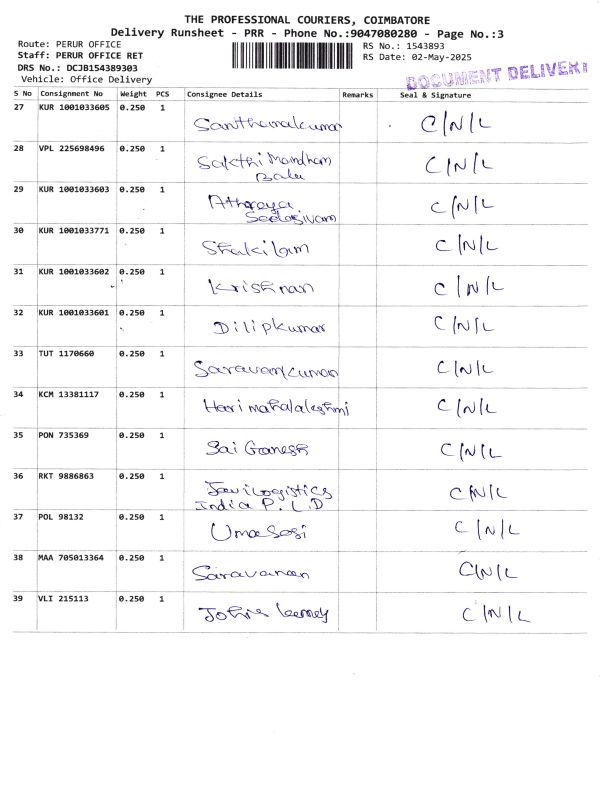 THE PROFESSIONAL COURIERS, COIMBATORE
Delivery Runsheet - PRR - Phone No.:9047080280 - Page No.:3
Route: PERUR OFFICE
RS No.: 1543893
Staff: PERUR OFFICE RET
RS Date: 02-May-2025
DRS No.: DCJB154389303
Vehicle: Office Delivery
DOCUMENT DELIVERY
S No Consignment No Weight PCS Consignee Details Remarks Seal & Signature
27 KUR 1001033605 0.250 1 Santhanakumar C/N/L
28 VPL 225698496 0.250 1 Sakthi C/N/L
Balu
29 KUR 1001033603 0.250 1 Athraya C/N/L
Sadasivam
30 KUR 1001033771 0.250 1 C/N/L
31 KUR 1001033602 0.250 1 Krishnan C/N/L
32 KUR 1001033601 0.250 1 Dilipkumar C/N/L
33 TUT 1170660 0.250 1 Saravankumar C/N/L
34 KCM 13381117 0.250 1 Harimahalakshmi C/N/L
35 PON 735369 0.250 1 Sai Ganesh C/N/L
36 RKT 9886863 0.250 1 Logistics C/N/L
India P. L.D
37 POL 98132 0.250 1 C/N/L
38 MAA 705013364 0.250 1 Saravanan C/N/L
39 VLI 215113 0.250 1 C/N/L